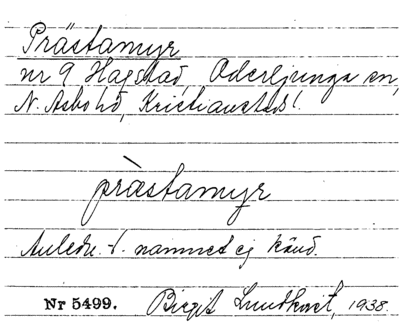 Prästamyr
nr 9 Hagstad, Oderljunga sn,
N. Åsbo hd, Kristianstads l.
pràstamyr
Anledn. t. namnet ej känd.
Nr 5499. Birgit Lundkvist, 1938.